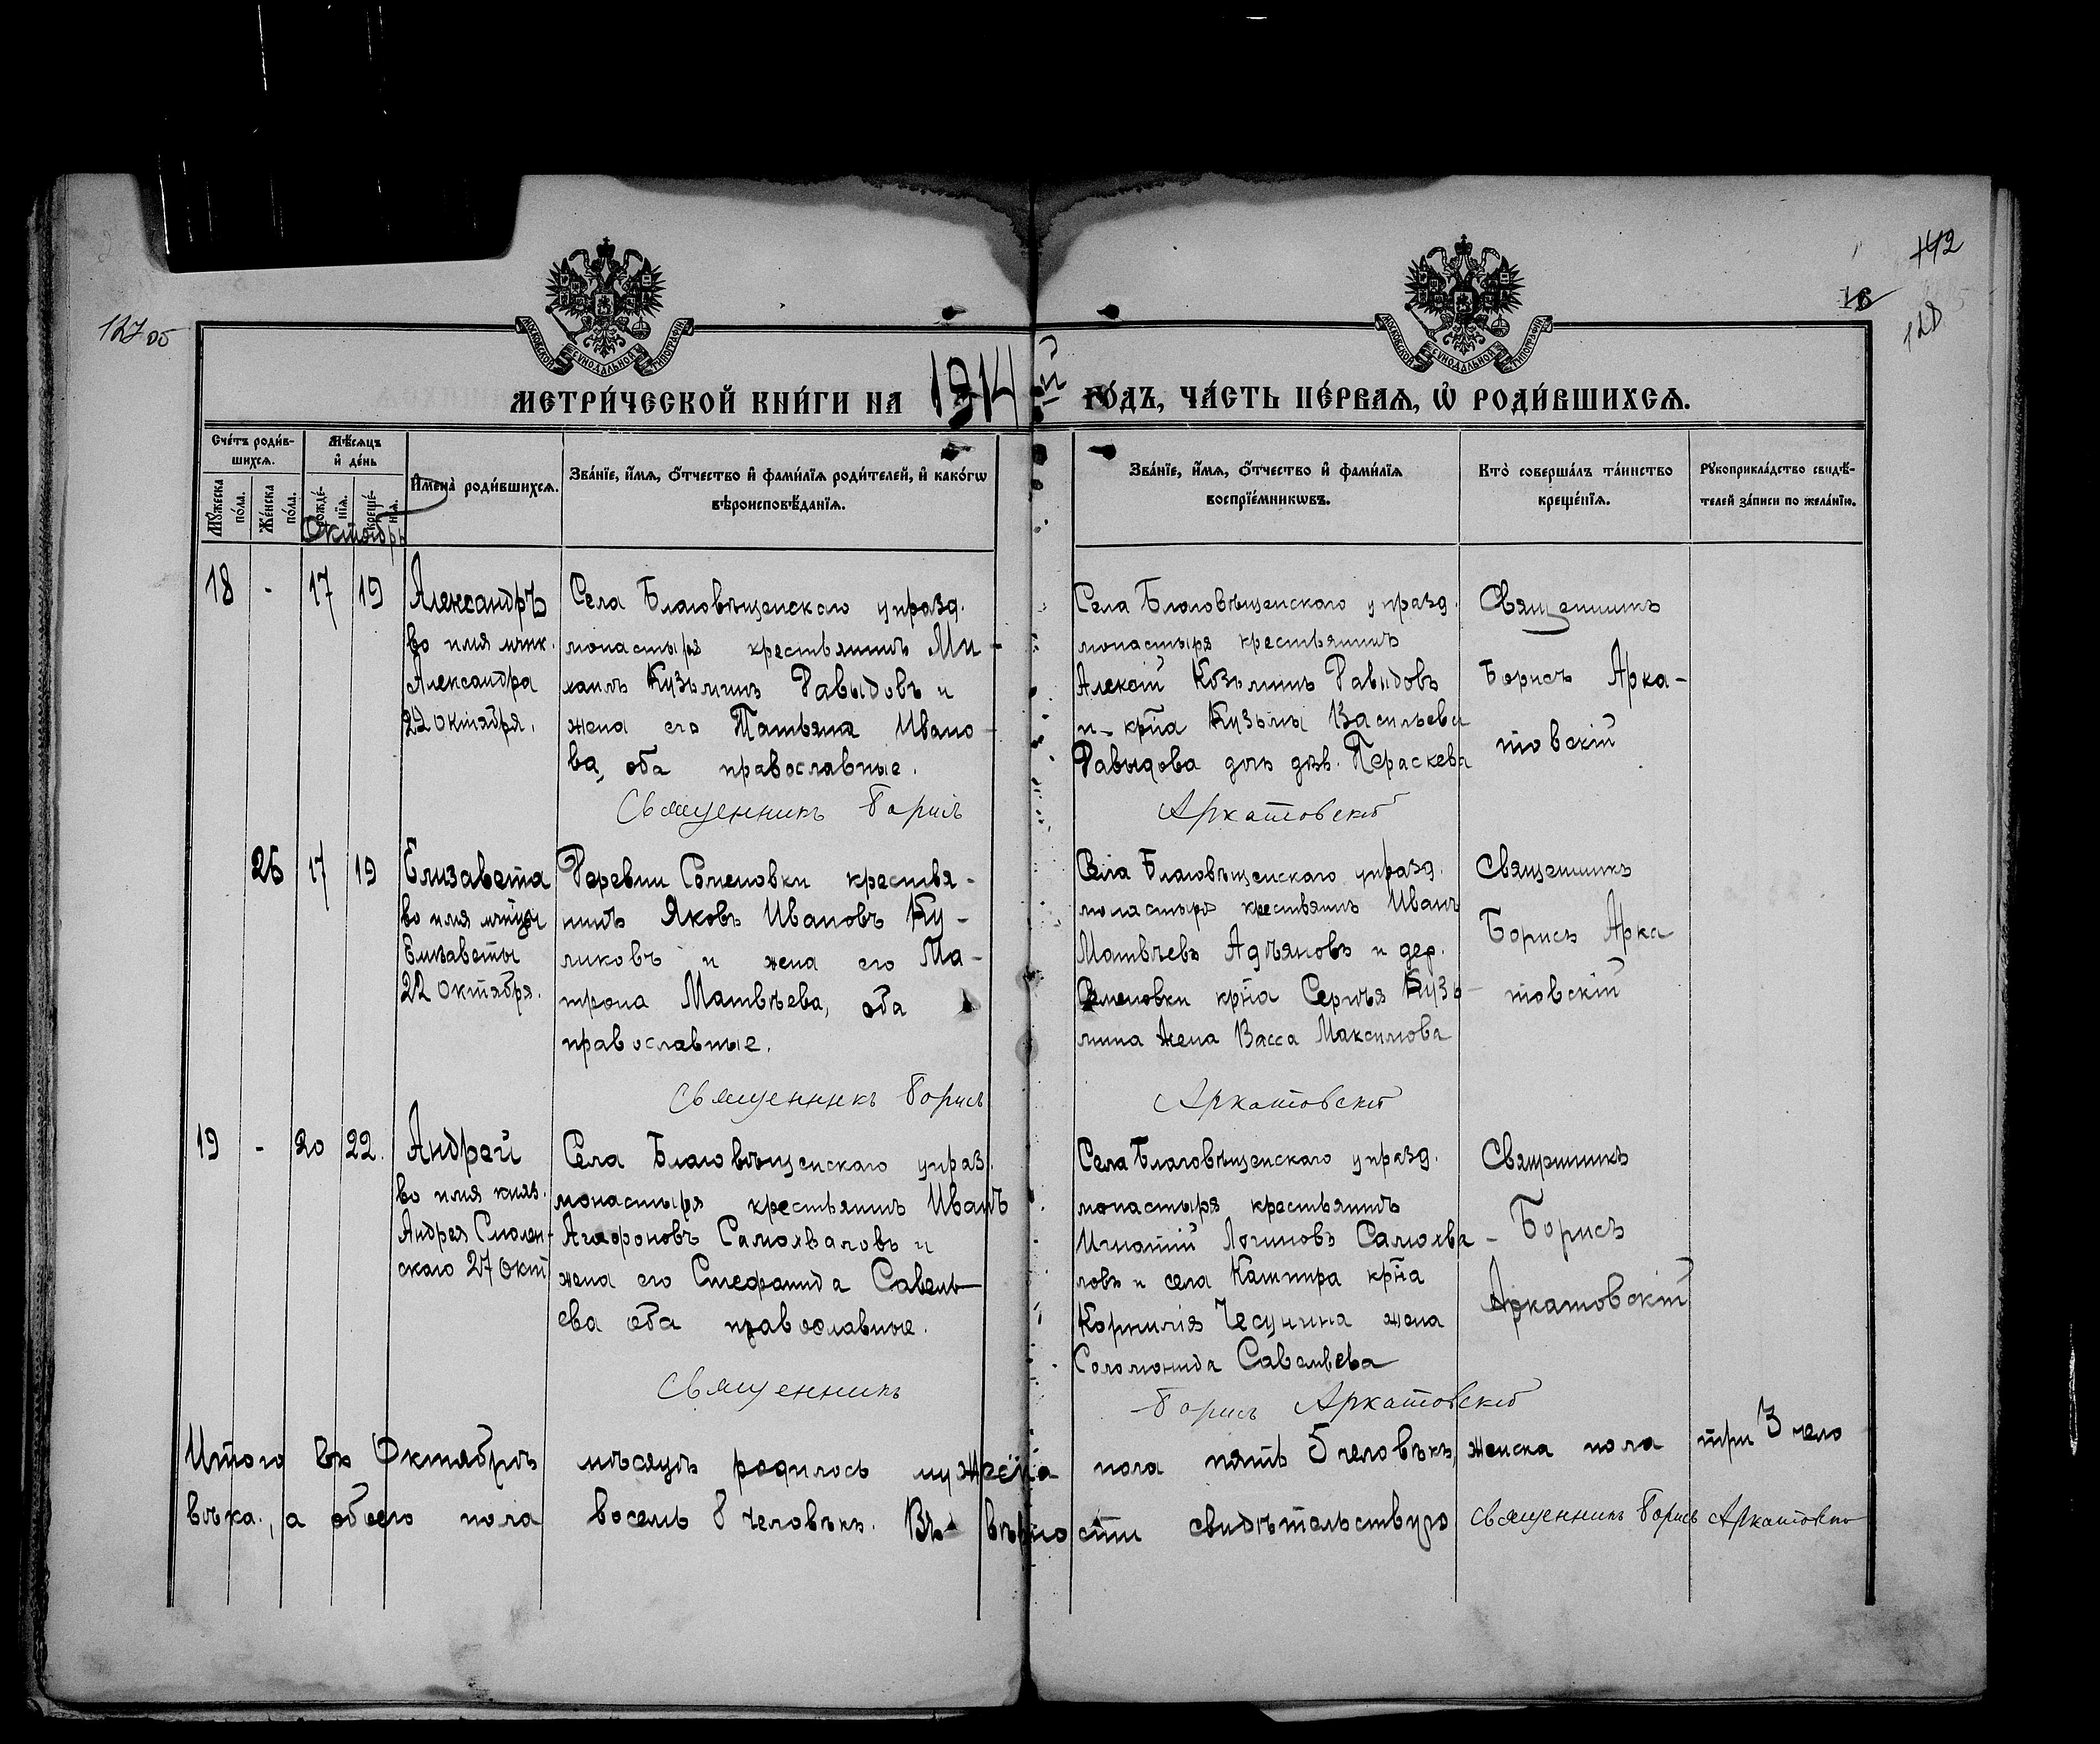 142
16
128
127 об
МОСКОВСКОЙ СѴНОДАЛЬНОЙ ТИПОГРАФІИ
МОСКОВСКОЙ СѴНОДАЛЬНОЙ ТИПОГРАФІИ
МЕТРИ́ЧЕСКОЙ КНИ́ГИ НА 1914 ГО́ДЪ, ЧА́СТЬ ПЕ́РВАѦ, Ѡ҆ РОДИ́ВШИХСѦ.
Сче́тъ роди́в-
шихсѧ.
Мꙋ́жеска по́ла.
Же́нска по́ла.
Мѣ́сѧцъ
и҆ де́нь
рожде́-
нїѧ.
креще́-
нїѧ.
Октябрь
И҆мена̀ роди́вшихсѧ.
Зва́нїе, и҆́мѧ, ѻ҆́тчество и҆ фами́лїѧ роди́телей, и҆ како́гѡ
вѣроисповѣ́данїѧ.
Зва́нїе, и҆́мѧ, ѻ҆́тчество и҆ фами́лїѧ
воспрїе́мникѡвъ.
Кто̀ соверша́лъ та́инство
креще́нїѧ.
Рꙋкоприкла́дство свидѣ́-
телей за́писи по жела́нїю.
18 - 17 19
Александръ
во имя мчнк.
Александра
22 октября.
Села Благовѣщенскаго упразд.
монастыря крестьянинъ Ми-
хаилъ Кузьминъ Давыдовъ и
жена его Татьяна Ивано-
ва, оба православные.
Села Благовѣщенскаго упразд.
монастыря крестьянинъ
Алексій Козьминъ Давыдовъ
и крна Кузьмы Васильева
Давыдова дочь дѣв. Параскева
Священникъ
Борисъ Арка-
товскій
Священникъ Борисъ Аркатовскій
26 17 19
Елизавета
во имя мчницы
Елизаветы
22 октября.
Деревни Семеновки крестья-
нинъ Яковъ Ивановъ Ку-
ликовъ и жена его Ма-
трона Матвѣева, оба
православные.
Села Благовѣщенскаго упразд.
монастыря крестьянинъ Иванъ
Матвѣевъ Адѣяновъ и дер.
Семеновки крна Сергѣя Кузь-
мина жена Васса Максимова
Священникъ
Борисъ Арка
товскій
Священникъ Борисъ Аркатовскій
19 - 20 22.
Андрей
во имя княз.
Андрея Смолен-
скаго 27 окт
Села Благовѣщенскаго упраз.
монастыря крестьянинъ Иванъ
Агафоновъ Самохваловъ и
жена его Стефанида Савель-
ева оба православные.
Села Благовѣщенскаго упразд.
монастыря крестьянинъ
Игнатій Логиновъ Самохва-
ловъ и села Кашпира крна
Корнилія Чесунина жена
Соломонида Савельева
Священникъ
Борисъ
Аркатовскій
Священникъ Борисъ Аркатовскій
Итого въ Октябрѣ мѣсяцѣ родилось мужеска пола пять 5 человѣкъ, женска пола три 3 чело
вѣка, а обоего пола восемь 8 человѣкъ. Въ вѣрности свидѣтельствую священникъ Борисъ Аркатовскій